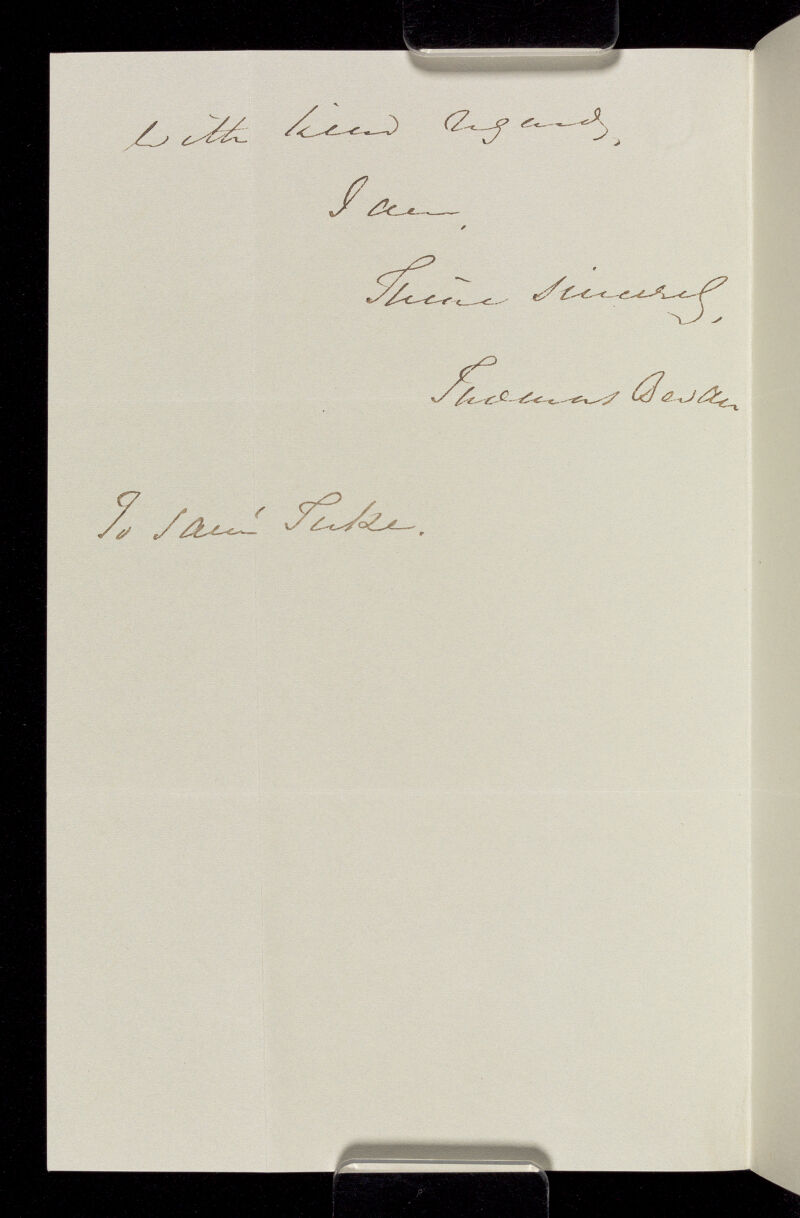 With kind regards,
I am,
Thine sincerely,
Thomas Bevan
To Sam'l Tuke.